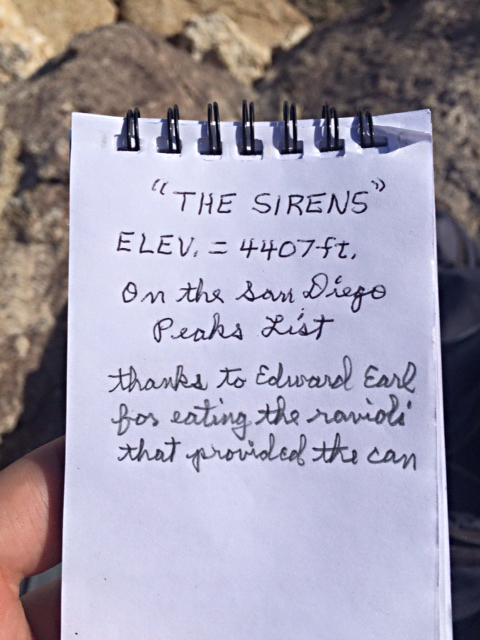 "THE SIRENS"
ELEV. = 4407ft.
On the San Diego
Peaks List
thanks to Edward Earl
for eating the ravioli
that provided the can